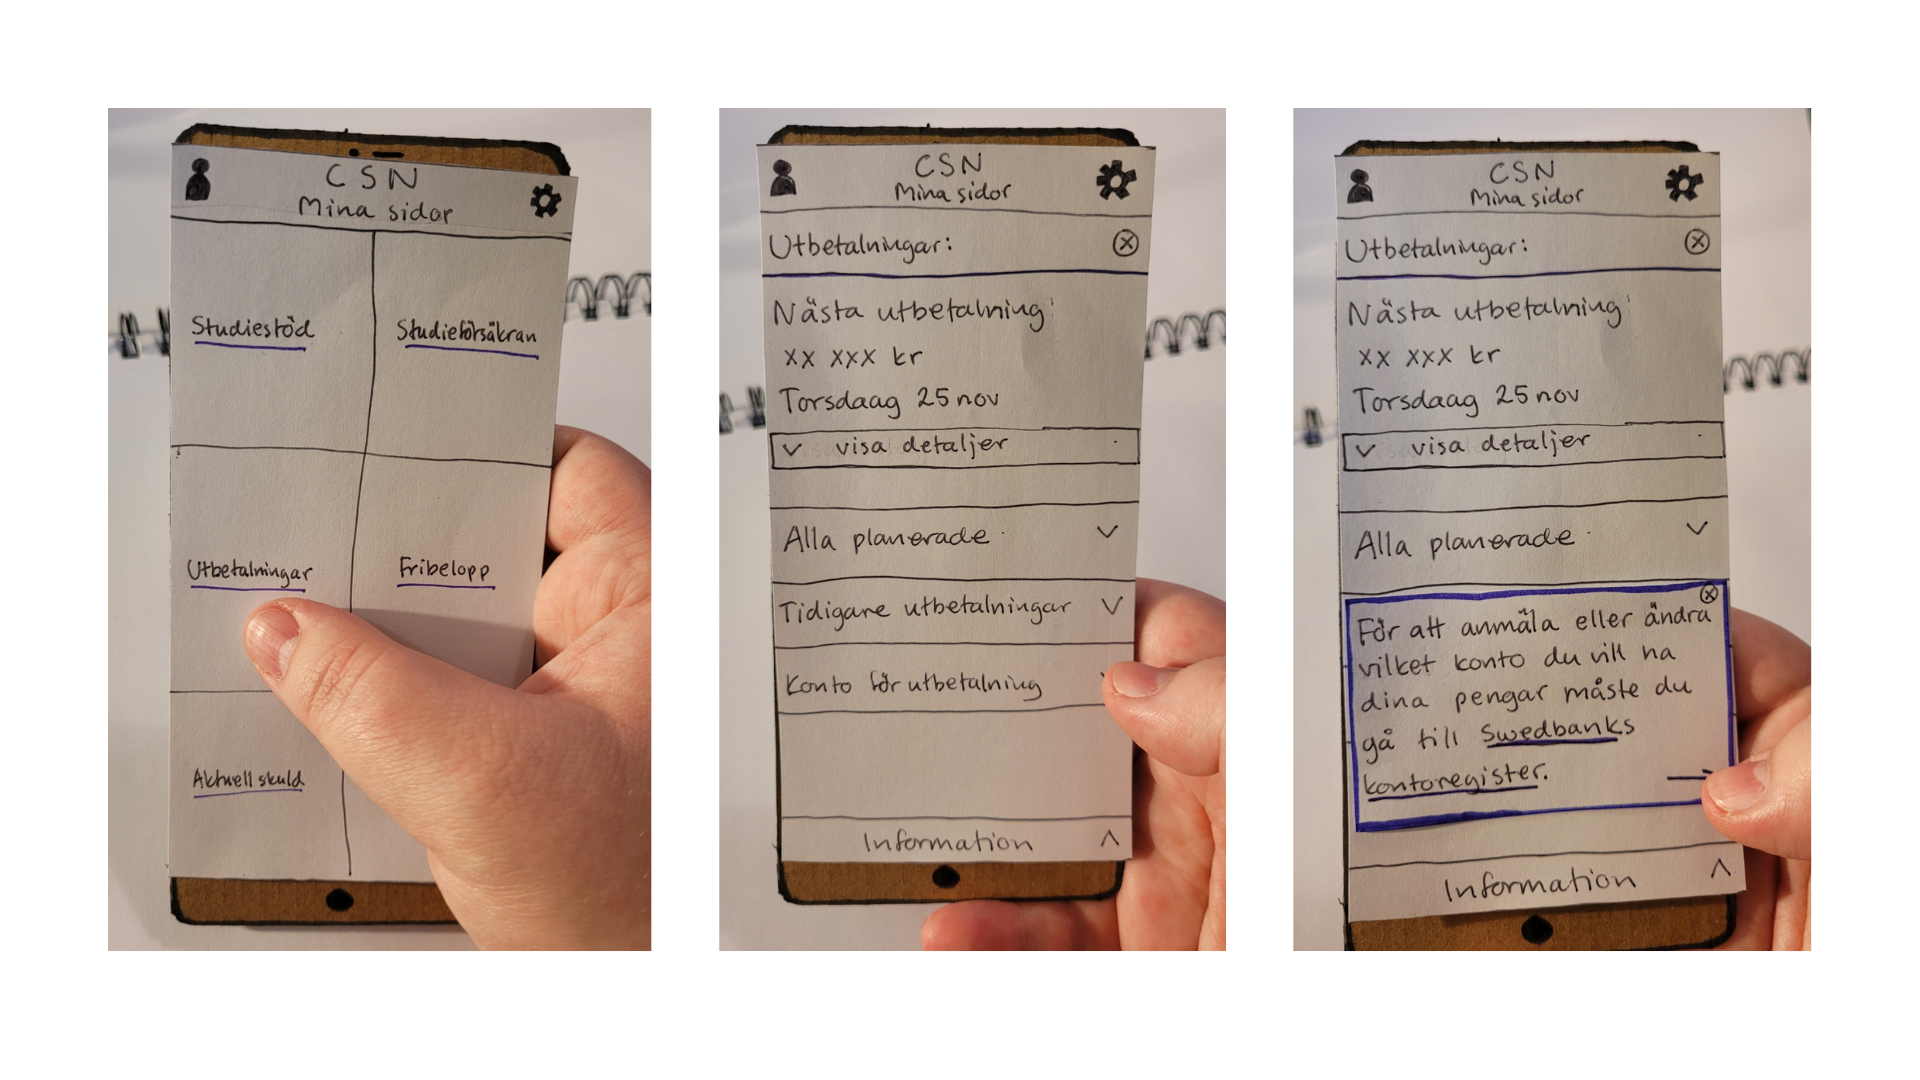 CSN
Mina sidor
Studiestöd
Studieförsäkran
Utbetalningar
Fribelopp
Aktuell skuld
CSN
Mina sidor
Utbetalningar:
Nästa utbetalning:
xx xxx kr
Torsdaag 25 nov
visa detaljer
Alla planerade
Tidigare utbetalningar
Konto för utbetalning
Information
CSN
Mina sidor
Utbetalningar:
Nästa utbetalning:
xx xxx kr
Torsdaag 25 nov
visa detaljer
Alla planerade
För att anmäla eller ändra
vilket konto du vill na
dina pengar måste du
gå till Swedbanks
kontoregister.
Information